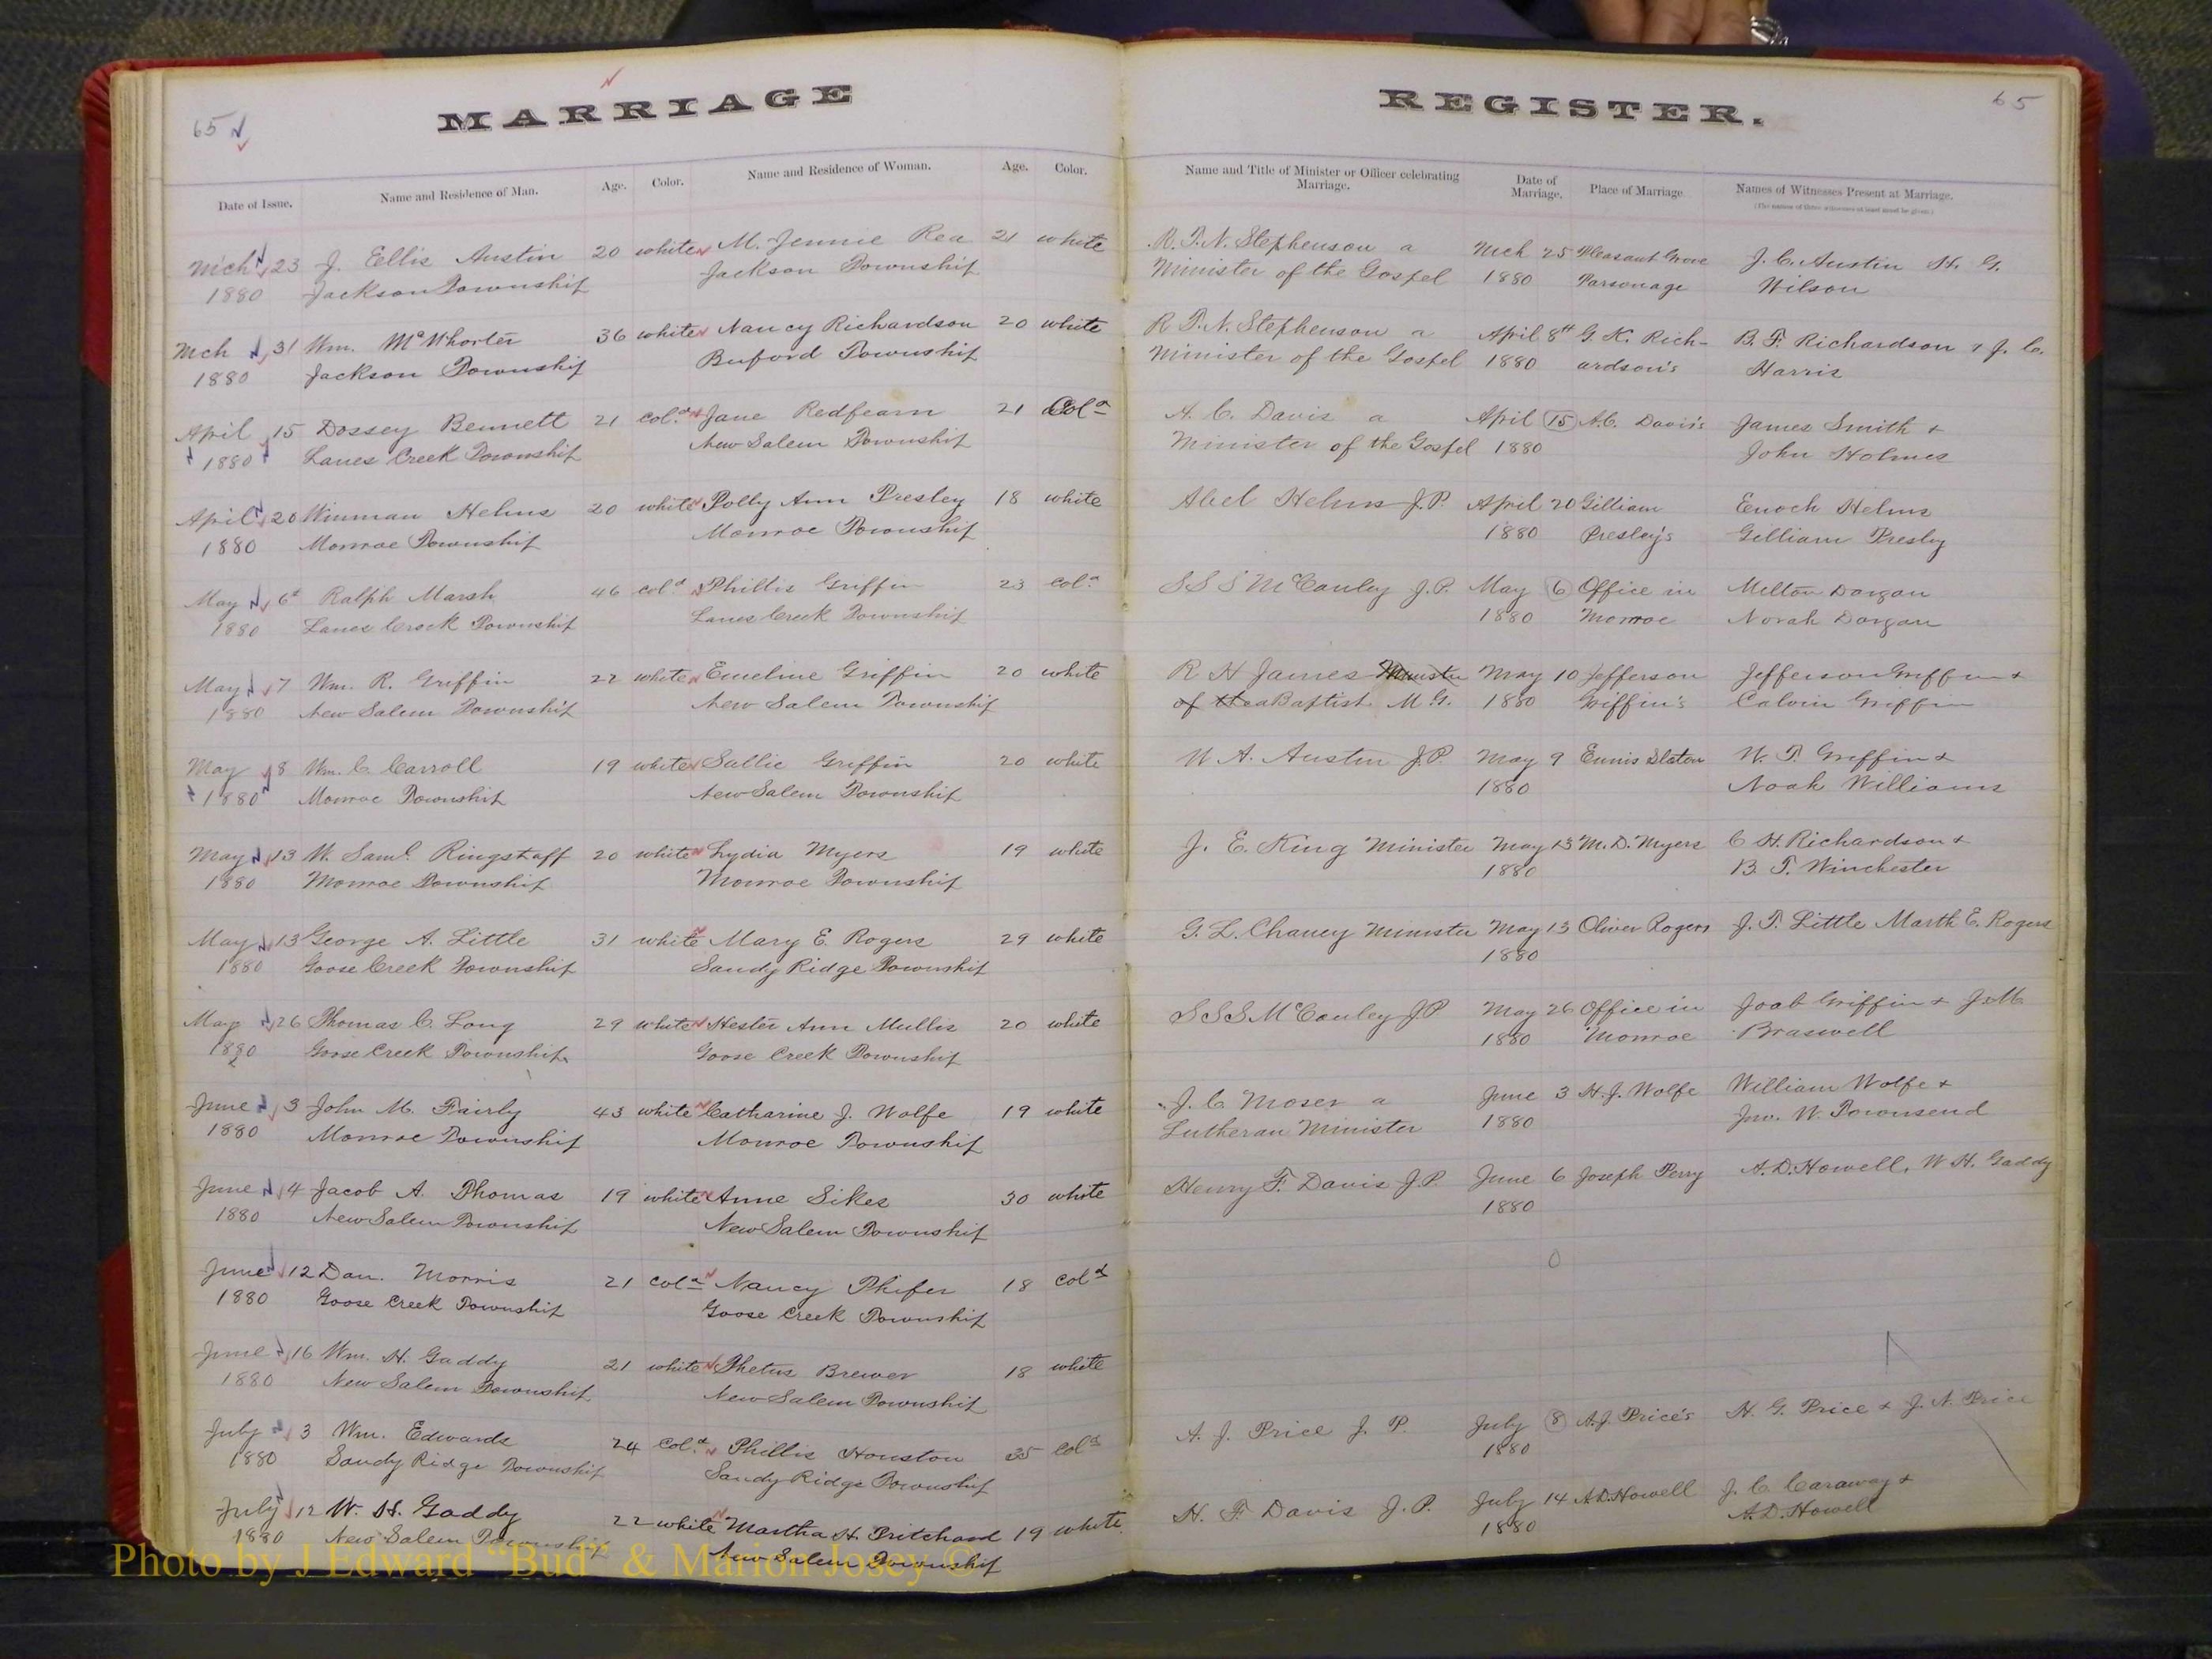 65
MARRIAGE
Date of Issue. Name and Residence of Man. Age. Color. Name and Residence of Woman. Age. Color.
Mch 23 J. Ellis Austin 20 white M. Jennie Rea 21 white
1880 Jackson Township Jackson Township
Mch 31 Wm. McWhorter 36 white Nancy Richardson 20 white
1880 Jackson Township Buford Township
April 15 Dossey Bennett 21 Col.d Jane Redfearn 21 Cold
1880 Lanes Creek Township New Salem Township
April 20 Winman Helms 20 white Polly Ann Presley 18 white
1880 Monroe Township Monroe Township
May 6 Ralph Marsh 46 cold Phillis Griffin 23 cold
1880 Lanes Creek Township Lanes Creek Township
May 7 Wm. R. Griffin 22 white Emeline Griffin 20 white
1880 New Salem Township New Salem Township
May 8 Wm. C. Carroll 19 white Sallie Griffin 20 white
1880 Monroe Township New Salem Township
May 13 W. Saml. Ringstaff 20 white Lydia Myers 19 white
1880 Monroe Township Monroe Township
May 13 George A. Little 31 white Mary E. Rogers 29 white
1880 Goose Creek Township Sandy Ridge Township
May 26 Thomas C. Long 29 white Hester Ann Mullis 20 white
1880 Goose Creek Township Goose Creek Township
June 3 John M. Fairly 43 white Catharine J. Wolfe 19 white
1880 Monroe Township Monroe Township
June 4 Jacob A. Thomas 19 white Anne Sikes 30 white
1880 New Salem Township New Salem Township
June 12 Dan. Morris 21 cold Nancy Phifer 18 cold
1880 Goose Creek Township Goose Creek Township
June 16 Wm. H. Gaddy 21 white Thetus Brewer 18 white
1880 New Salem Township New Salem Township
July 3 Wm. Edwards 24 col.d Phillis Houston 35 cold
1880 Sandy Ridge Township Sandy Ridge Township
July 12 W. H. Gaddy 22 white Martha H. Pritchard 19 white
1880 New Salem Township New Salem Township
REGISTER.
65
Name and Title of Minister or Officer celebrating Marriage. Date of Marriage. Place of Marriage Names of Witnesses Present at Marriage.
(The names of three witnesses at least must be given.)
R. T. N. Stephenson a Mch 25 Pleasant Grove J. C. Austin H. G.
Minister of the Gospel 1880 Parsonage Wilson
R T. N. Stephenson a April 8th G. K. Rich- B. F. Richardson & J. C.
Minister of the Gospel 1880 ardson's Harris
A. C. Davis a April 15 A.C. Davis's James Smith &
Minister of the Gospel 1880 John Holmes
Abel Helms J.P. April 20 Gilliam Enoch Helms
1880 Presley's Gilliam Presley
S S S McCauley J.P. May 6 Office in Melton Dargan
1880 Monroe Norah Dargan
R H James Minister May 10 Jefferson Jefferson Griffin &
of the a Baptist M.G. 1880 Griffin's Calvin Griffin
W. A. Austin J.P. May 9 Ennis Staton W. T. Griffin &
1880 Noah Williams
J. E. King Minister May 13 M. D. Myers C H. Richardson &
1880 B. T. Winchester
G. L. Chaney Minister May 13 Oliver Rogers J. T. Little Marth E. Rogers
1880
S S S McCauley J.P May 26 Office in Joab Griffin & J. M.
1880 Monroe Braswell
J. C. Moser a June 3 H. J. Wolfe William Wolfe &
Lutheran Minister 1880 Jno. W. Townsend
Henry F. Davis J.P. June 6 Joseph Perry A. D. Howell, W H. Gaddy
1880
A. J. Price J. P. July 8 A.J. Price's H. G. Price & J. N. Price
1880
H. F Davis J.P. July 14 A.D. Howell J. C. Caraway &
1880 A. D. Howell
Photo by J Edward “Bud” & Marion Josey ©